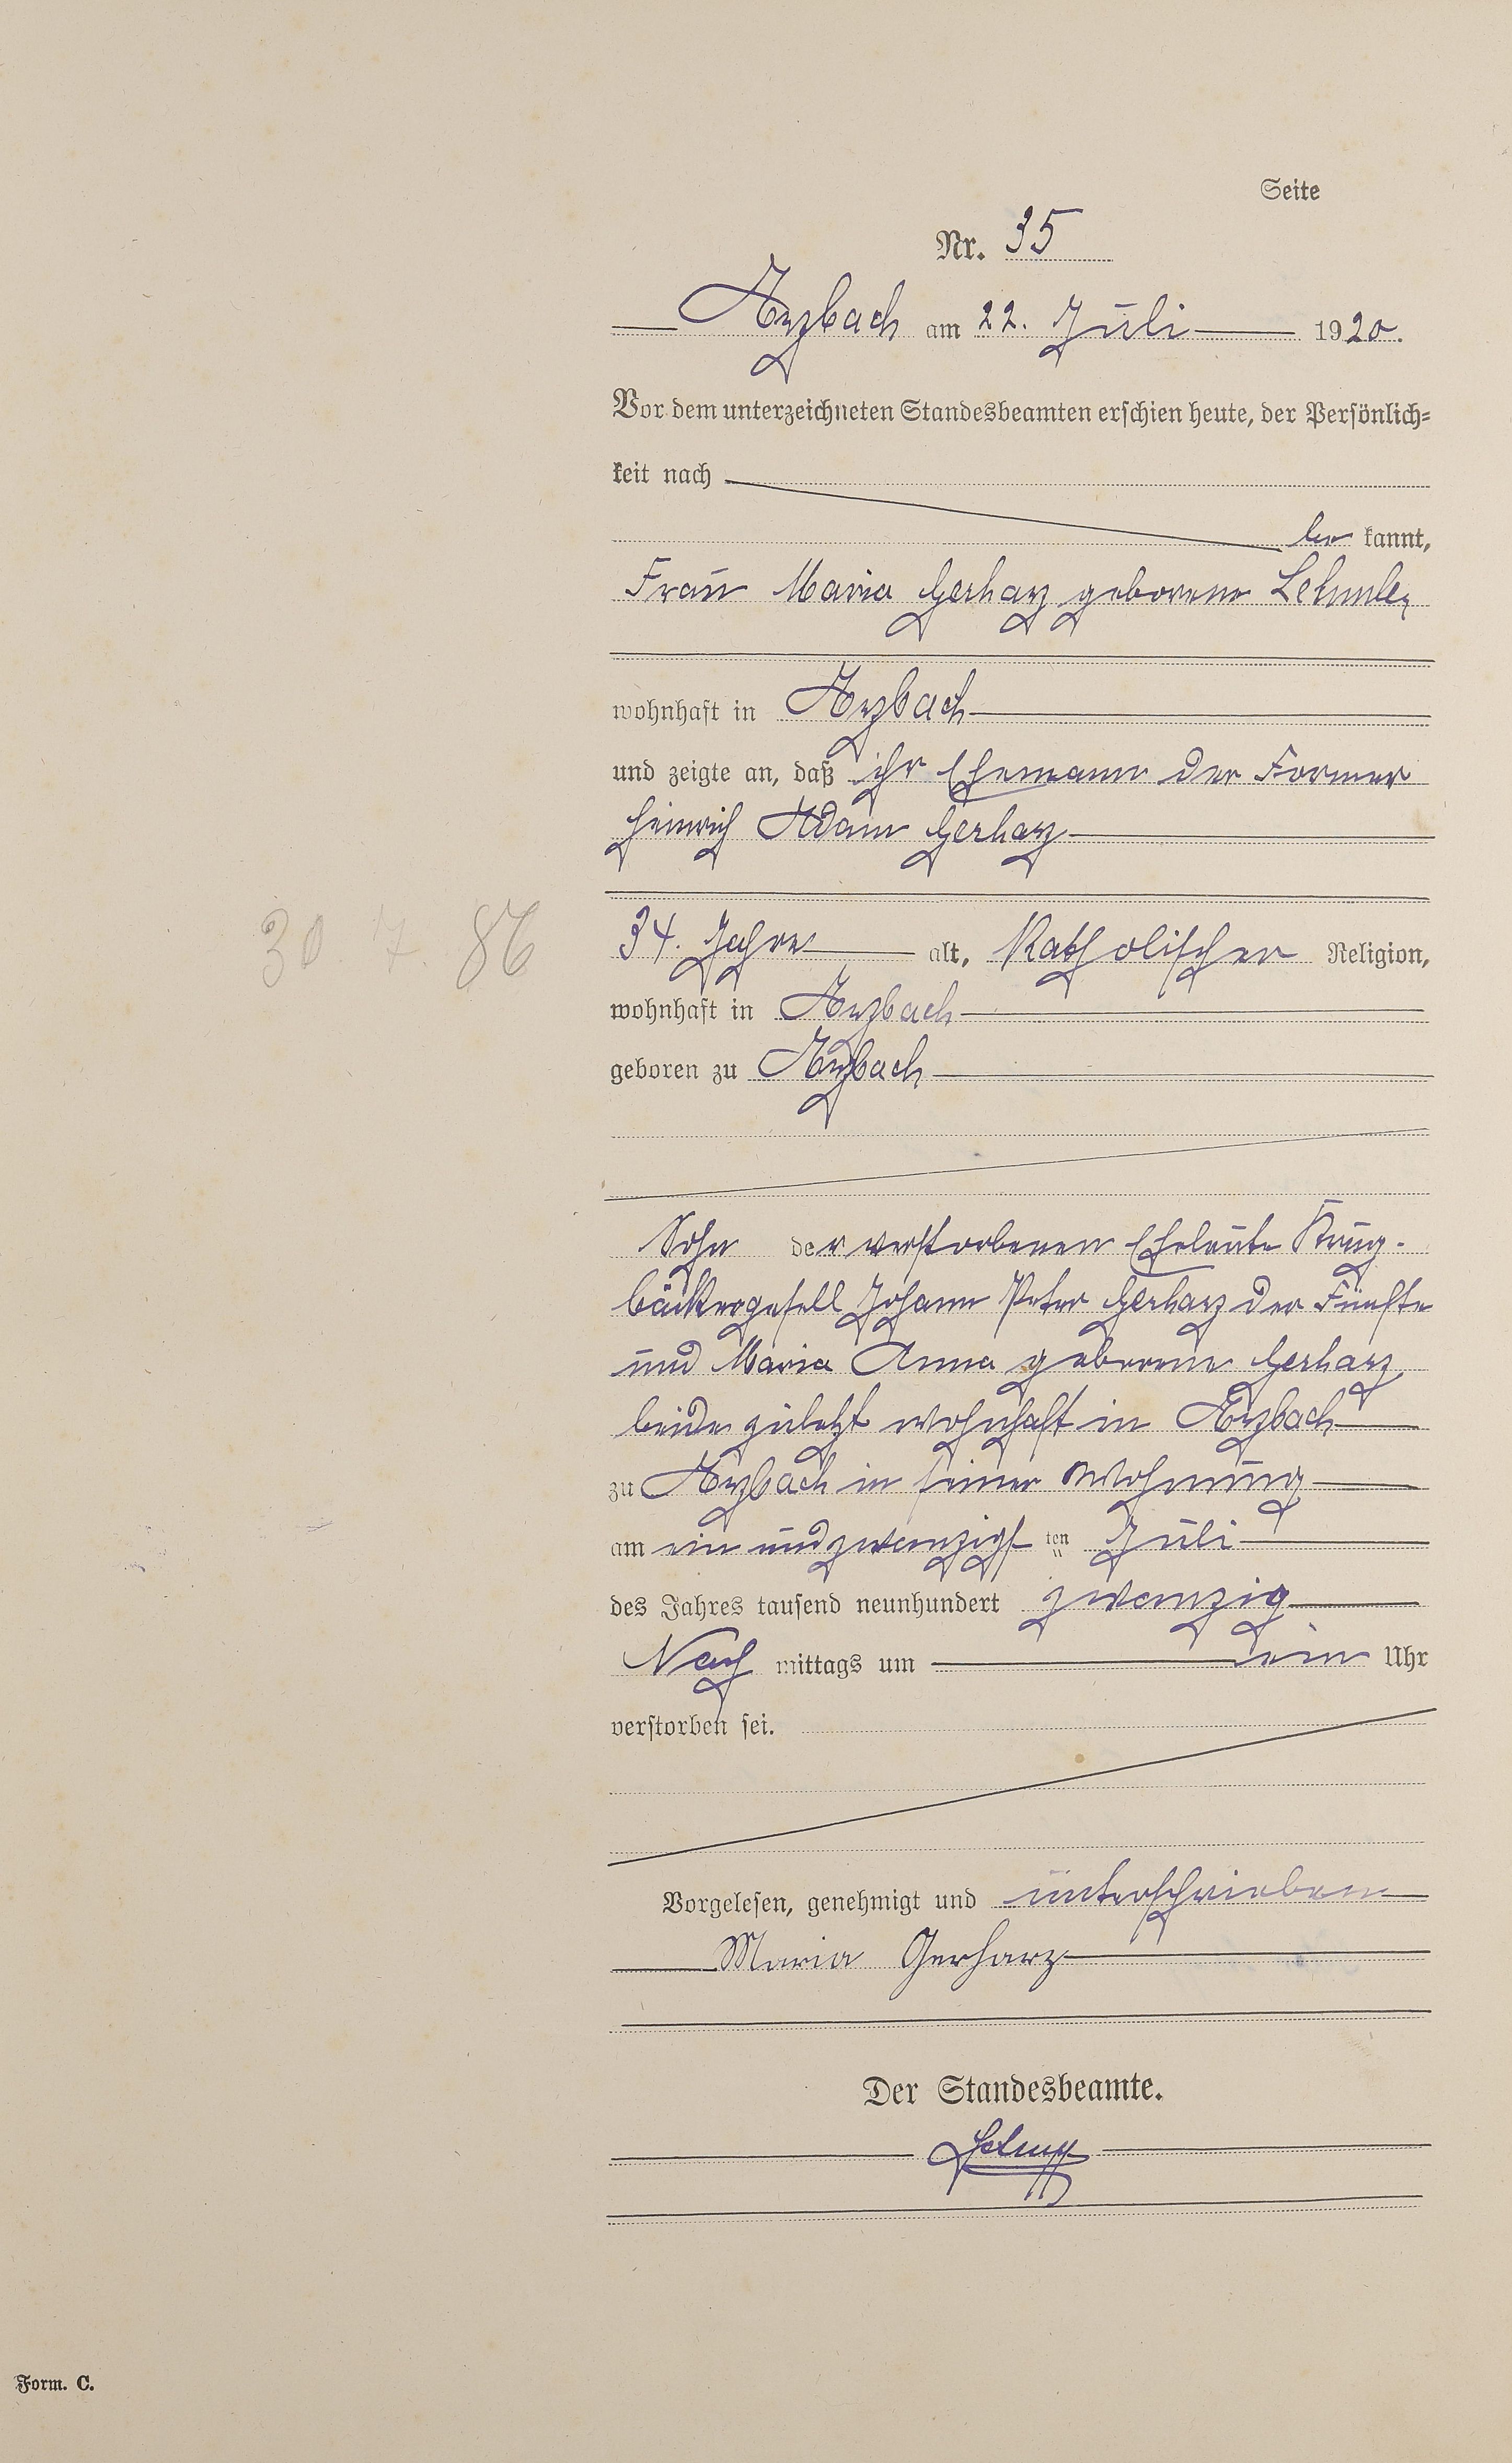 Seite
Nr. 35
Arzbach am 22. Juli 1920.
Vor dem unterzeichneten Standesbeamten erschien heute, der Persönlich=
keit nach
be kannt,
Frau Maria Gerharz geborene
wohnhaft in Arzbach
und zeigte an, daß ihr Ehemann der Former
Heinrich Adam Gerharz
30 7 86
34. Jahre alt, Katholischer Religion,
wohnhaft in Arzbach
geboren zu Arzbach
Sohn der verstorbenen Eheleute Krug-
bäckergesell Johann Peter Gerharz der Fünfte
und Maria Anna geborene Gerharz
beide zuletzt wohnhaft in Arzbach
zu Arzbach in seiner Wohnung
am ein und zwanzigsten Juli
des Jahres tausend neunhundert zwanzig
Nach mittags um ein Uhr
verstorben sei.
Vorgelesen, genehmigt und unterschrieben
Maria Gerharz
Der Standesbeamte.
Form. C.